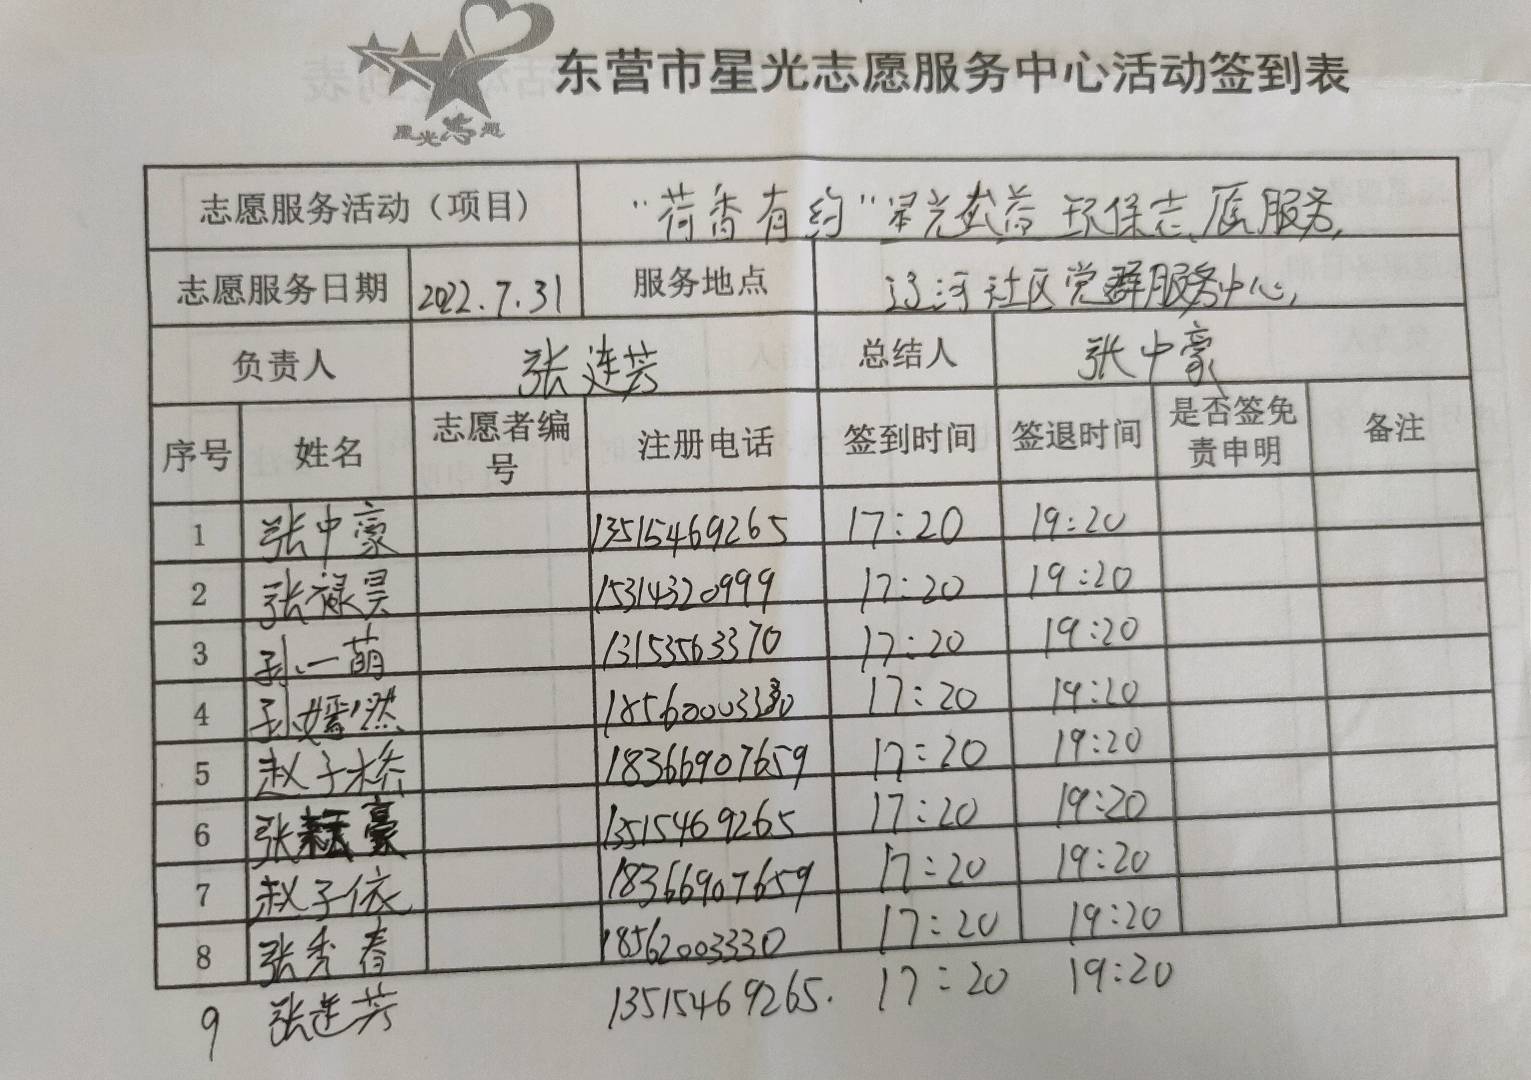 星光志愿
东营市星光志愿服务中心活动签到表
志愿服务活动（项目） “荷香有约”星光武益环保志愿服务
志愿服务日期 2022.7.31 服务地点 辽河社区党群服务中心
负责人 张莲芸 总结人 张中豪
序号 姓名 志愿者编号 注册电话 签到时间 签退时间 是否签免责申明 备注
1 张中豪 13515469265 17:20 19:20
2 张禄昊 15314320999 17:20 19:20
3 孙一萌 13153563370 17:20 19:20
4 孙嫣然 17:20 19:20
5 赵子木乔 18366907659 17:20 19:20
6 张 豪 13515469265 17:20 19:20
7 赵子依 18366907659 17:20 19:20
8 张秀春 18562003330 17:20 19:20
9 张莲芸 13515469265. 17:20 19:20